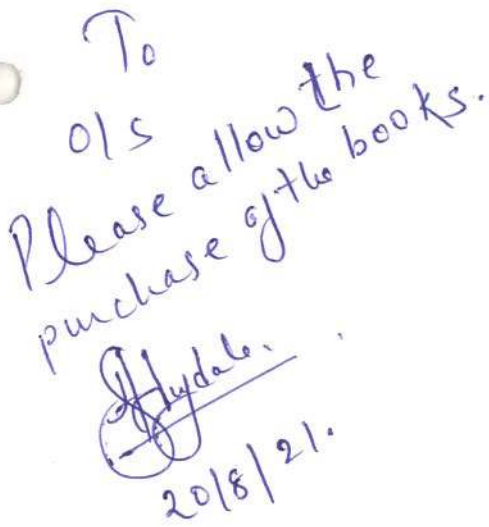 To
O/S
Please allow the
purchase of the books.
20/8/21.